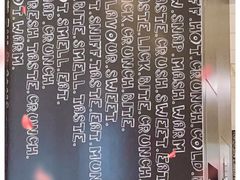 HOT.CRUNCH.COLD.
SNAP.MASH.WARM
TASTE.CRUSH.SWEET.EAT.
TASTE.LICK.BITE.CRUNCH.
CRUNCH.BITE.
FLAVOUR.SWEET.
SNIFF.TASTE.EAT.MUN
SMELL.TASTE.
SMELL.EAT.
CRUNCH.
TASTE.CRUNCH.
WARM